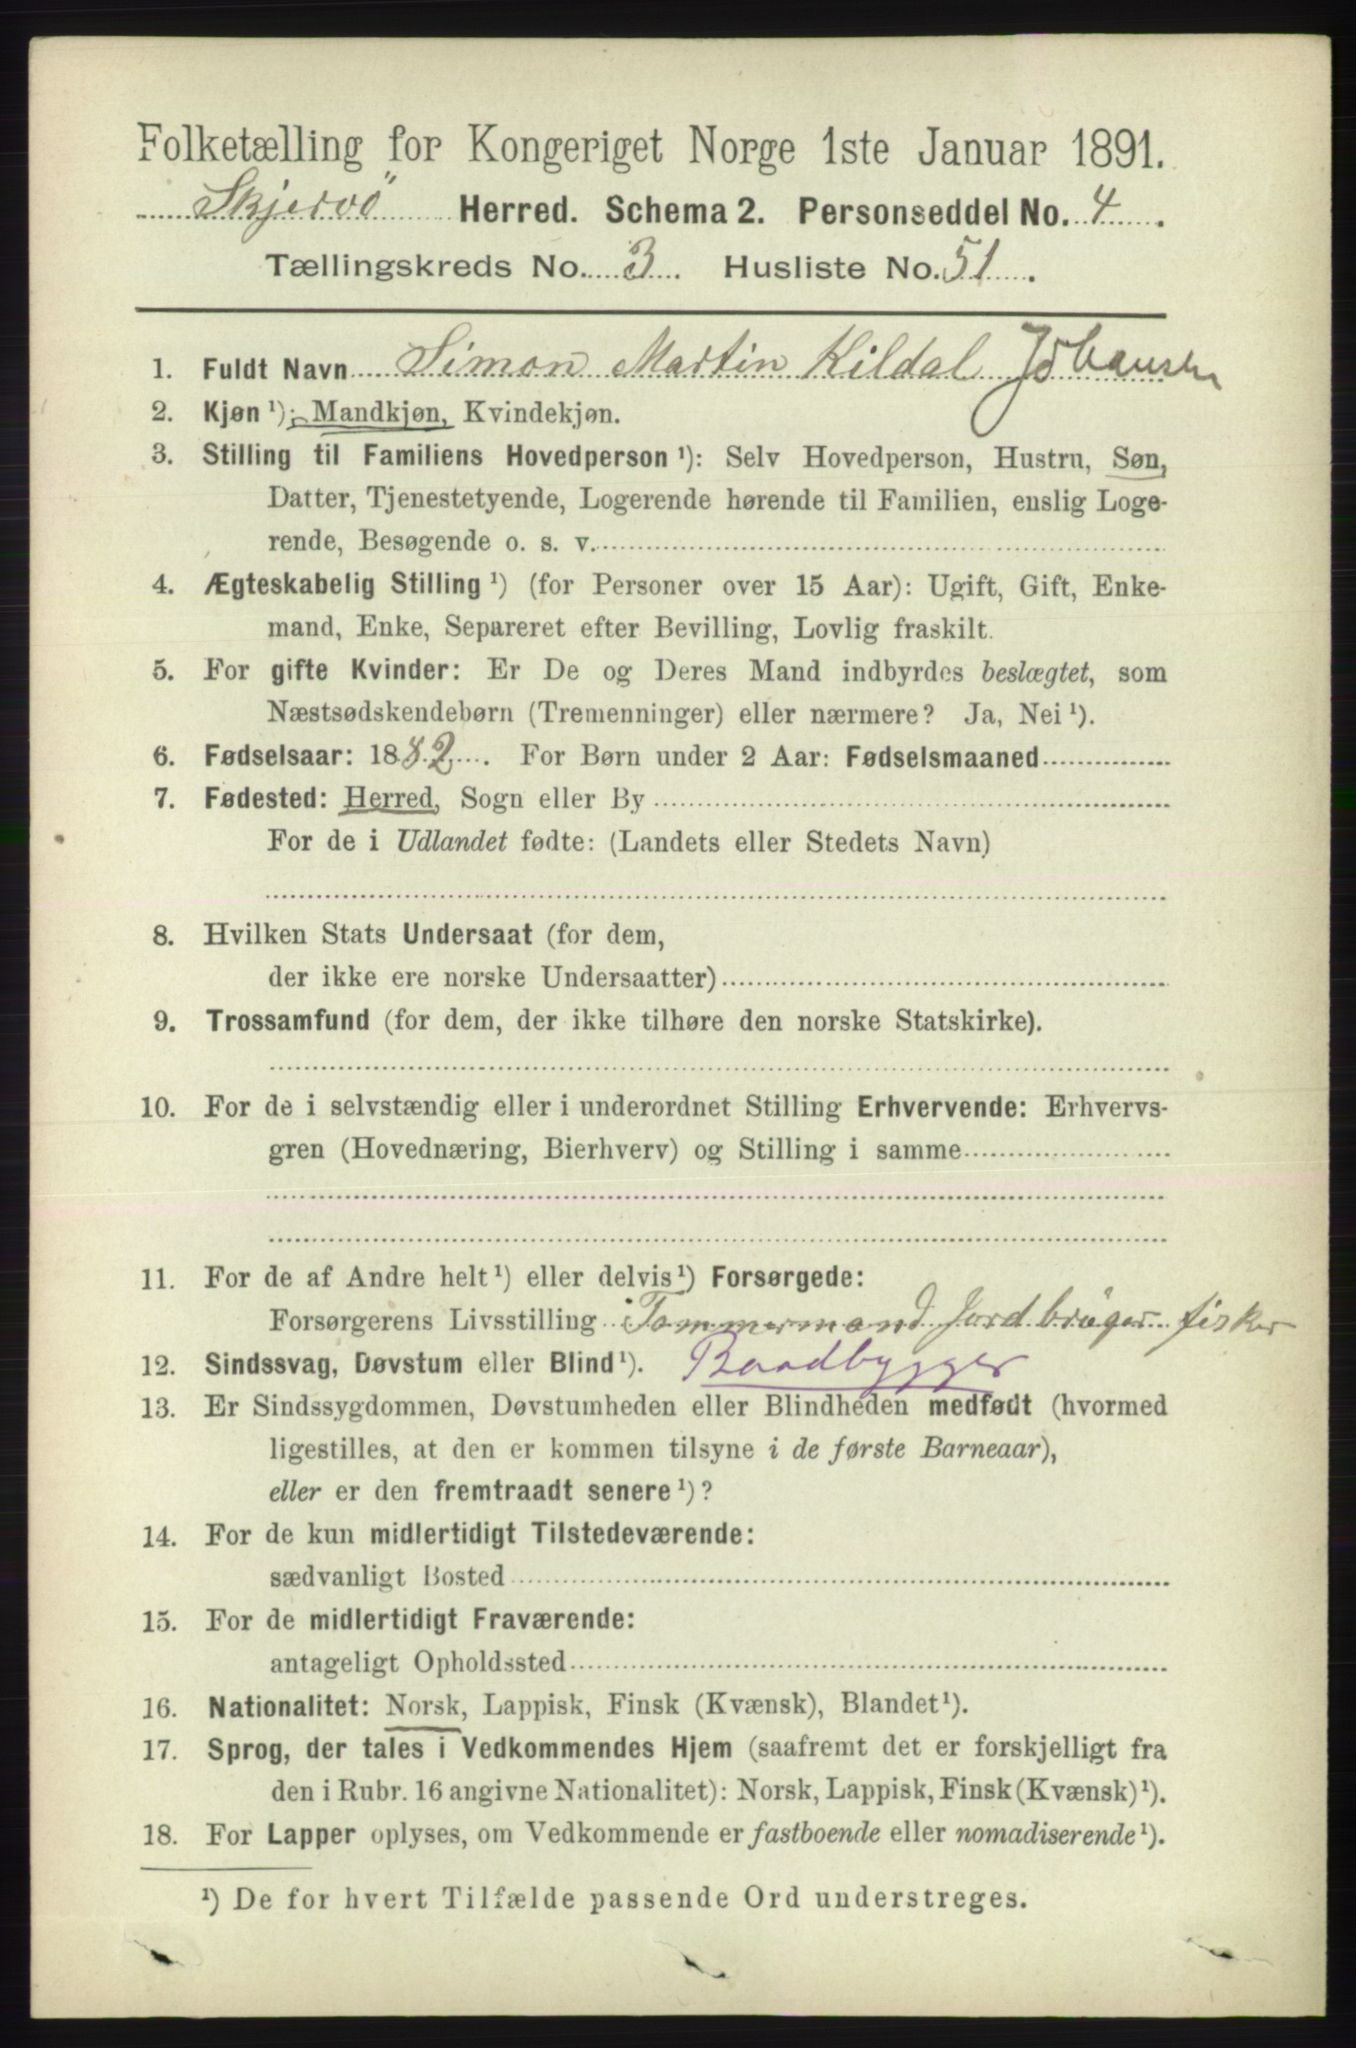 Folketælling for Kongeriget Norge 1ste Januar 1891.
Skjervö Herred. Schema 2. Personseddel No. 4.
Tællingskreds No. 3. Husliste No. 51.
1. Fuldt Navn Simon Martin Kildal Johansen
2. Kjøn ¹): Mandkjøn, Kvindekjøn.
3. Stilling til Familiens Hovedperson ¹): Selv Hovedperson, Hustru, Søn,
Datter, Tjenestetyende, Logerende hørende til Familien, enslig Loge-
rende, Besøgende o. s. v.
4. Ægteskabelig Stilling ¹) (for Personer over 15 Aar): Ugift, Gift, Enke-
mand, Enke, Separeret efter Bevilling, Lovlig fraskilt.
5. For gifte Kvinder: Er De og Deres Mand indbyrdes beslægtet, som
Næstsødskendebørn (Tremenninger) eller nærmere? Ja, Nei ¹).
6. Fødselsaar: 1882. For Børn under 2 Aar: Fødselsmaaned
7. Fødested: Herred, Sogn eller By
For de i Udlandet fødte: (Landets eller Stedets Navn)
8. Hvilken Stats Undersaat (for dem,
der ikke ere norske Undersaatter)
9. Trossamfund (for dem, der ikke tilhøre den norske Statskirke).
10. For de i selvstændig eller i underordnet Stilling Erhvervende: Erhvervs-
gren (Hovednæring, Bierhverv) og Stilling i samme
11. For de af Andre helt ¹) eller delvis ¹) Forsørgede:
Forsørgerens Livsstilling Tømmermand Jordbrüger fisker
12. Sindssvag, Døvstum eller Blind ¹). Baadbygger
13. Er Sindssygdommen, Døvstumheden eller Blindheden medfødt (hvormed
ligestilles, at den er kommen tilsyne i de første Barneaar),
eller er den fremtraadt senere ¹)?
14. For de kun midlertidigt Tilstedeværende:
sædvanligt Bosted
15. For de midlertidigt Fraværende:
antageligt Opholdssted
16. Nationalitet: Norsk, Lappisk, Finsk (Kvænsk), Blandet ¹).
17. Sprog, der tales i Vedkommendes Hjem (saafremt det er forskjelligt fra
den i Rubr. 16 angivne Nationalitet): Norsk, Lappisk, Finsk (Kvænsk) ¹).
18. For Lapper oplyses, om Vedkommende er fastboende eller nomadiserende ¹).
¹) De for hvert Tilfælde passende Ord understreges.